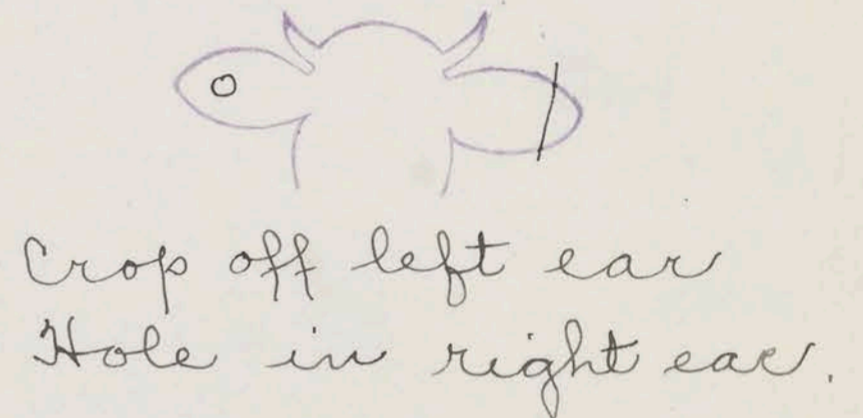 Crop off left ear
Hole in right ear.